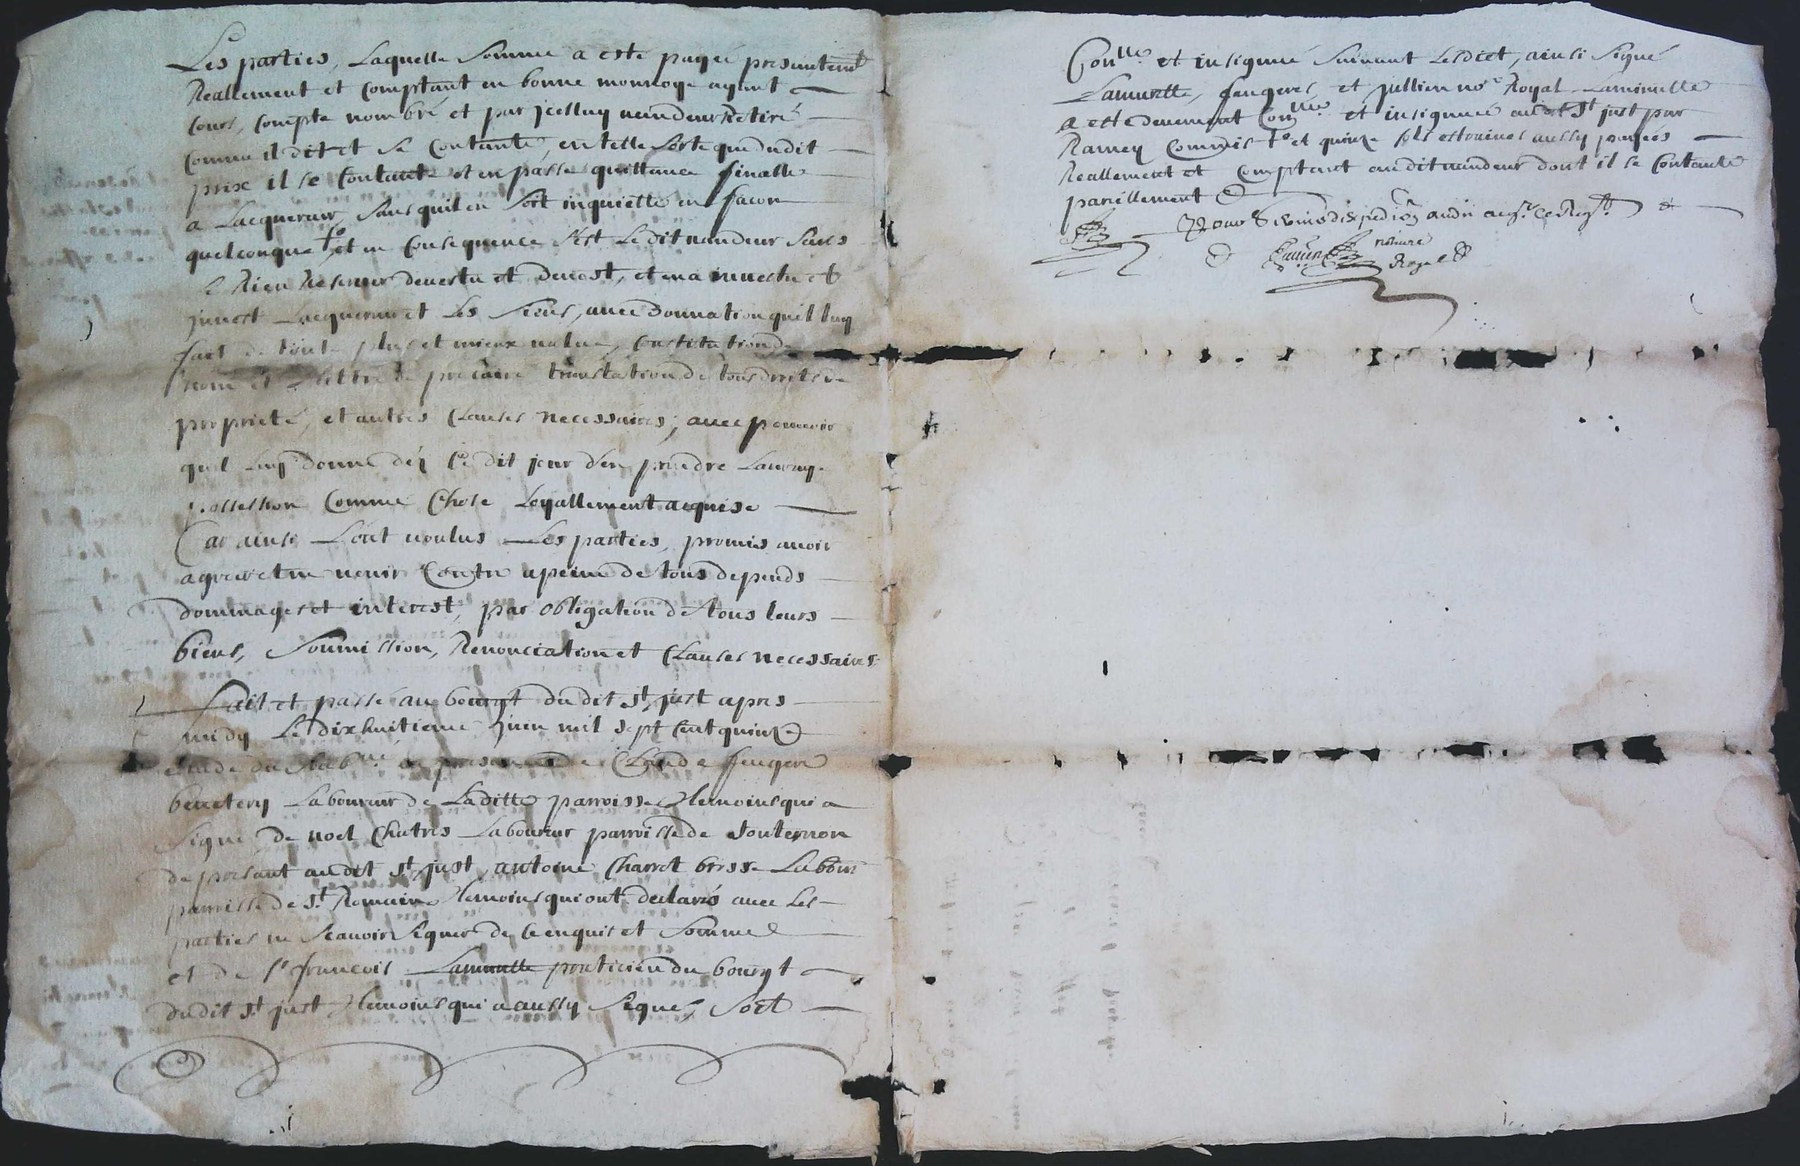 Les parties, Laquelle Somme a esté payée presentemt
Reallement et Comptant en bonne monnoye ayant
Cours, Compté nombré et par jcelluy vandeur Retiré
Comme il dit et se Contante, en telle Sorte que dudit
prix il se Contante et en passe quittance finalle
a Lacquereur, Sans quil en Soit inquietté en facon
quelconque, et en Consequence S'est Ledit vandeur Sans
Rien Reserver devestu et et en a investu et
Lacquereur et Les Siens, avec donnation quil luy
fact de toute plus et mieux value, Constitution de
nom et tittre de precaire translation de tous droits de
proprieté, et autres Clauses necessaires, avec pouvoir
quil luy donne déz Ce dit jour d'en prendre
possession Comme Chose Loyallement acquise
Car ainsi L'ont voulus Les parties, promis avoir
agreer et ne venir Contre a peine de tous depends
dommages et interest, par obligation de tous leurs
biens, Soumission, Renonciation et Clauses necessaires
fait et passé au bourgt dudit St just apres
midy Le dixhuitieme juin mil Sept Cent quinze
en presence de Claude feugere
Laboureur de Laditte parroisse temoins qui a
Signé, de noel Chatres Laboureur parroisse de Souternon
de presant audit St just, antoine Charret Labour
parroisse de St Romain temoins qui ont declarés avec Les
parties ne Scavoir Signer de Ce enquis et Sommé
et de Sr francois Lamurette praticien du bourgt
dudit St just temoins qui a aussy Signé, Soit
Conllé et insignué Suivant Ledict, ainsi Signé
Lamurette, feugeres, et jullien nore Royal Laminutte
a esté devement Conllé et insignuée audit St just par
Ramey Commis et quinze Sols estraines aussy payées
Reallement et Comptant audit vandeur dont il se Contante
pareillement
notaire
Royal